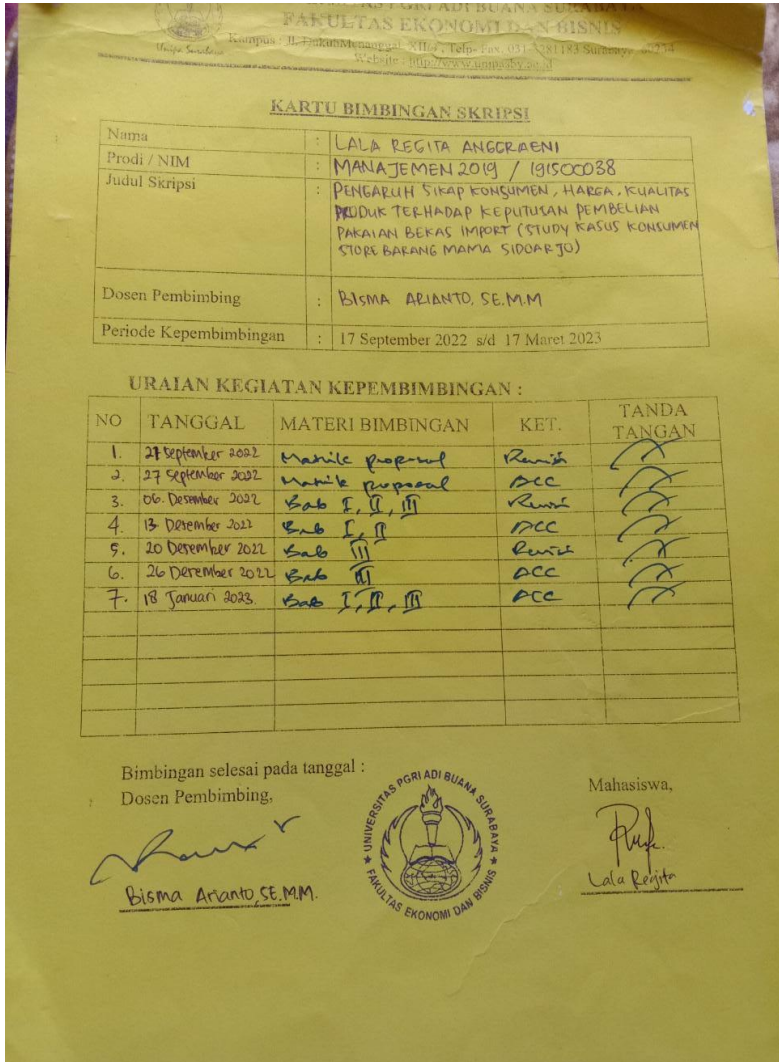 PGRI ADI BUANA SURABAYA
FAKULTAS EKONOMI DAN BISNIS
Kampus : Jl. DukuhMenanggal XII/4, Telp- Fax. 031-8281183 Surabaya 60234
Website : http://www.unipasby.ac.id
Unipa Surabaya
KARTU BIMBINGAN SKRIPSI
Nama : LALA REGITA ANGGRAENI
Prodi / NIM : MANAJEMEN 2019 / 191500038
Judul Skripsi : PENGARUH SIKAP KONSUMEN, HARGA, KUALITAS
PRODUK TERHADAP KEPUTUSAN PEMBELIAN
PAKAIAN BEKAS IMPORT (STUDY KASUS KONSUMEN
STORE BARANG MAMA SIDOARJO)
Dosen Pembimbing : BISMA ARIANTO, SE.M.M
Periode Kepembimbingan : 17 September 2022 s/d 17 Maret 2023
URAIAN KEGIATAN KEPEMBIMBINGAN :
NO TANGGAL MATERI BIMBINGAN KET. TANDA TANGAN
1. 21 September 2022 Matrik proposal Revisi
2. 27 September 2022 Matrik proposal ACC
3. 06. Desember 2022 Bab I, II, III Revisi
4. 13 Desember 2022 Bab I, II ACC
5. 20 Desember 2022 Bab III Revisi
6. 26 Desember 2022 Bab III ACC
7. 18 Januari 2023. Bab I, II, III ACC
Bimbingan selesai pada tanggal :
Dosen Pembimbing, Mahasiswa,
UNIVERSITAS PGRI ADI BUANA SURABAYA
FAKULTAS EKONOMI DAN BISNIS
Bisma Arianto, SE.M.M. Lala Regita